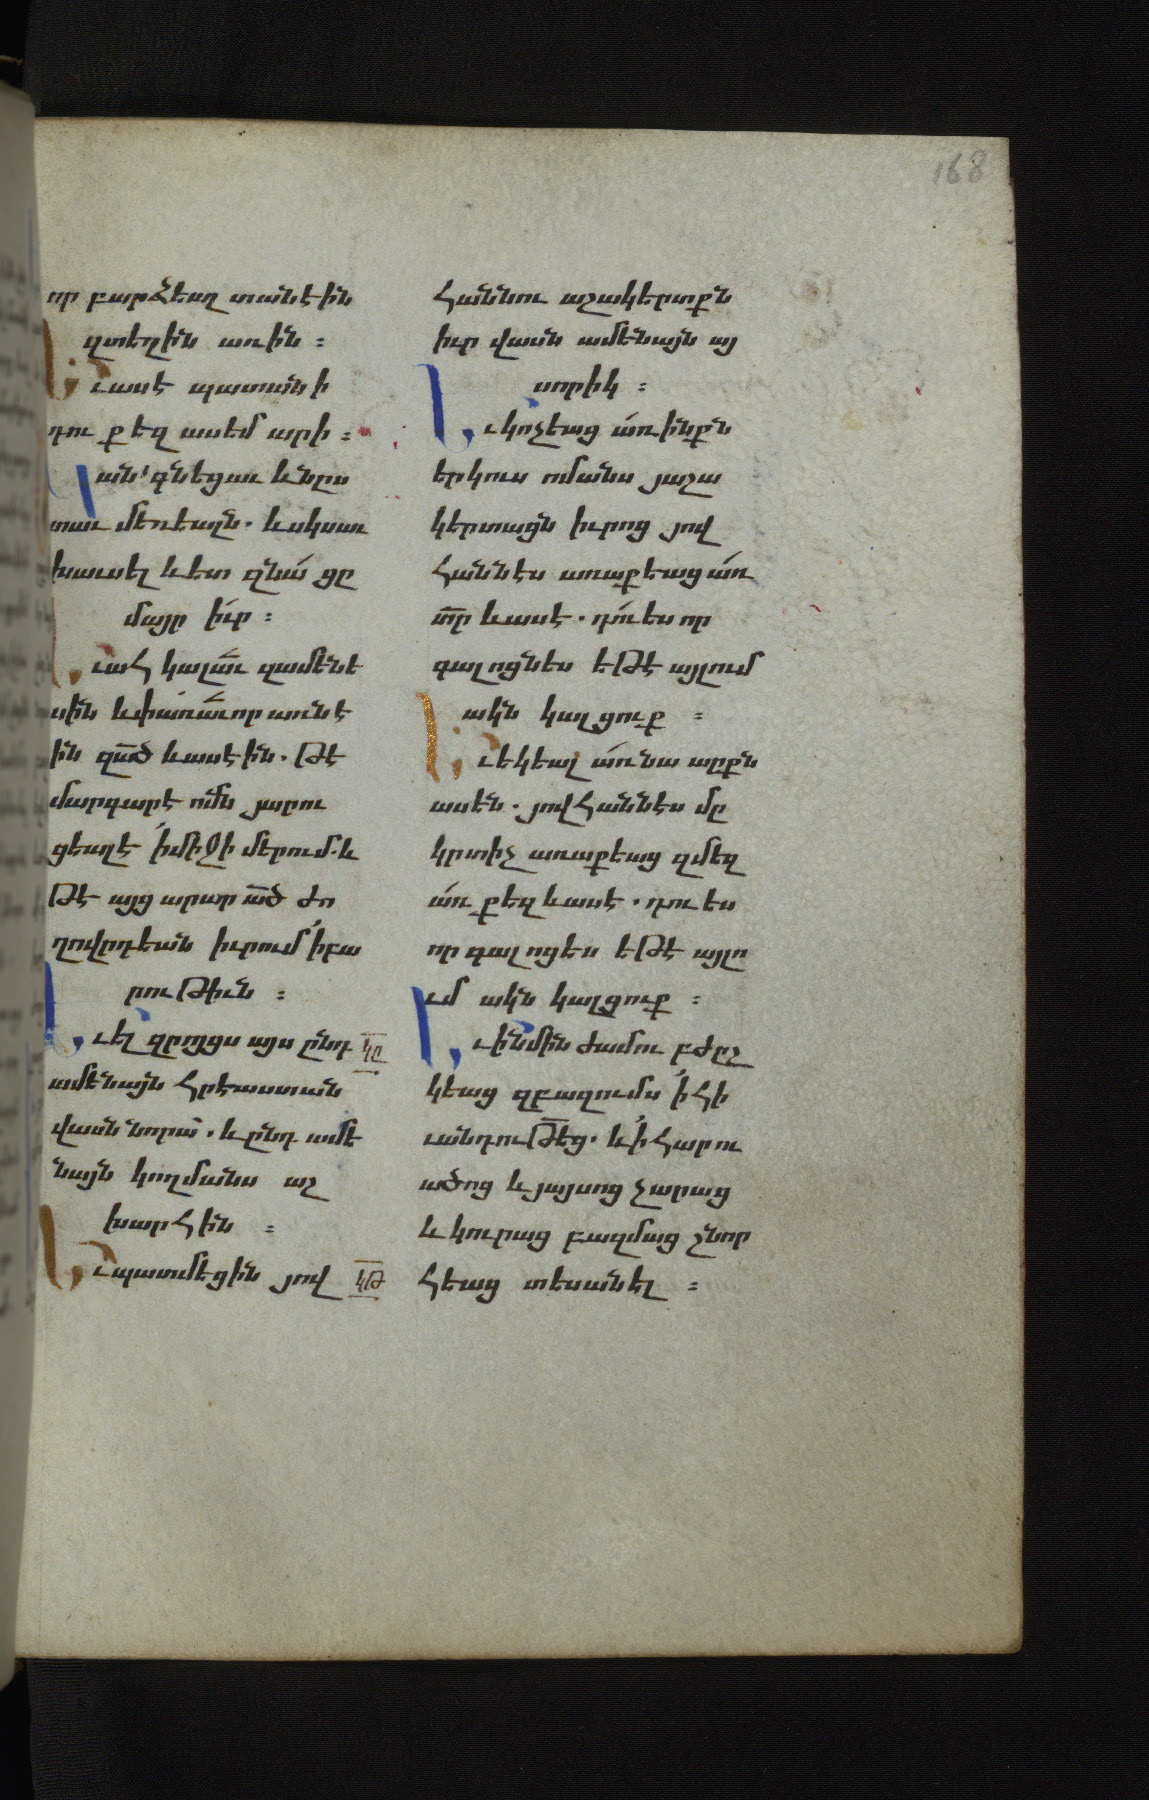 168
որ բարձեալ տանէին
զտեղին առին ։
Եւասէ պատանի
դու քեզ ասեմ արի ։
Եւ ան՛գնեցաւ և նըս
տաւ մեռեալն . և սկսաւ
խաւսել և ետ զնա ցը
մայր իւր ։
Եւ ահ կալաւ զամենե
սին և փառաւոր առնէ
ին զած և ասէին . թէ
մարգարէ ոմն յարու
ցեալ է ՛ի միջի մերում . և
թէ այց արար ած ժո
ղովրդեան իւրում ՛ի բա
րութիւն ։
Եւ ել զըոյցս այս ընդ
կը
ամենայն Հրէաստան
վասն նորա . և ընդ ամե
նայն կողմանս աշ
խարհին ։
Եւ պատմեցին յով
կթ
հաննու աշակերտքն
իւր վասն ամենայն այ
սորիկ ։
Եւ կոչեաց առ ինքն
երկուս ոմանս յաշա
կերտացն իւրոց յով
հաննէս առաքեաց առ
տր և ասէ . դու ես որ
գալոցնես եթէ այլում
ակն կալցուք ։
Եւ եկեալ առ նա արքն
ասեն . յովհաննէս մը
կրտիչ առաքեաց զմեզ
առ քեզ և ասէ . դու ես
որ գալոցես եթէ այլո
ւմ ակն կալցուք ։
Եւ ինմին ժամու բժըշ
կեաց զբազումս ՛ի հի
ւանդութեց . և ՛ի հարու
ածոց և յայսոց չարաց
և կուրաց բազմաց շնոր
հեաց տեսանել ։